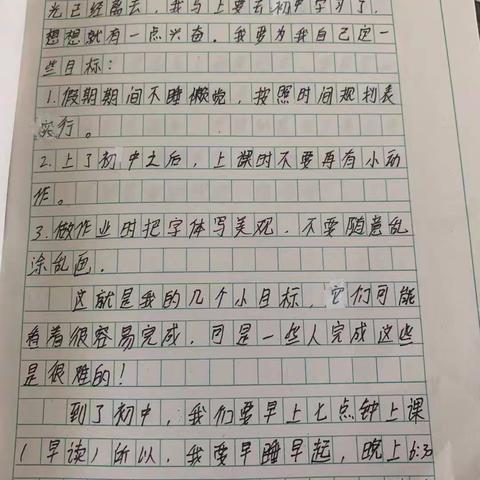 光已经离去，我马上要去初中学习了，
想想就有一点兴奋。我要为我自己定一
些目标：
1.假期期间不睡懒觉，按照时间规划表
实行。
2.上了初中之后，上课时不要再有小动
作。
3.做作业时把字体写美观，不要随意乱
涂乱画．
这就是我的几个小目标，它们可能
看着很容易完成，可是一些人完成这些
是很难的！
到了初中，我们要早上七点钟上课
（早读）所以，我要早睡早起，晚上6:30